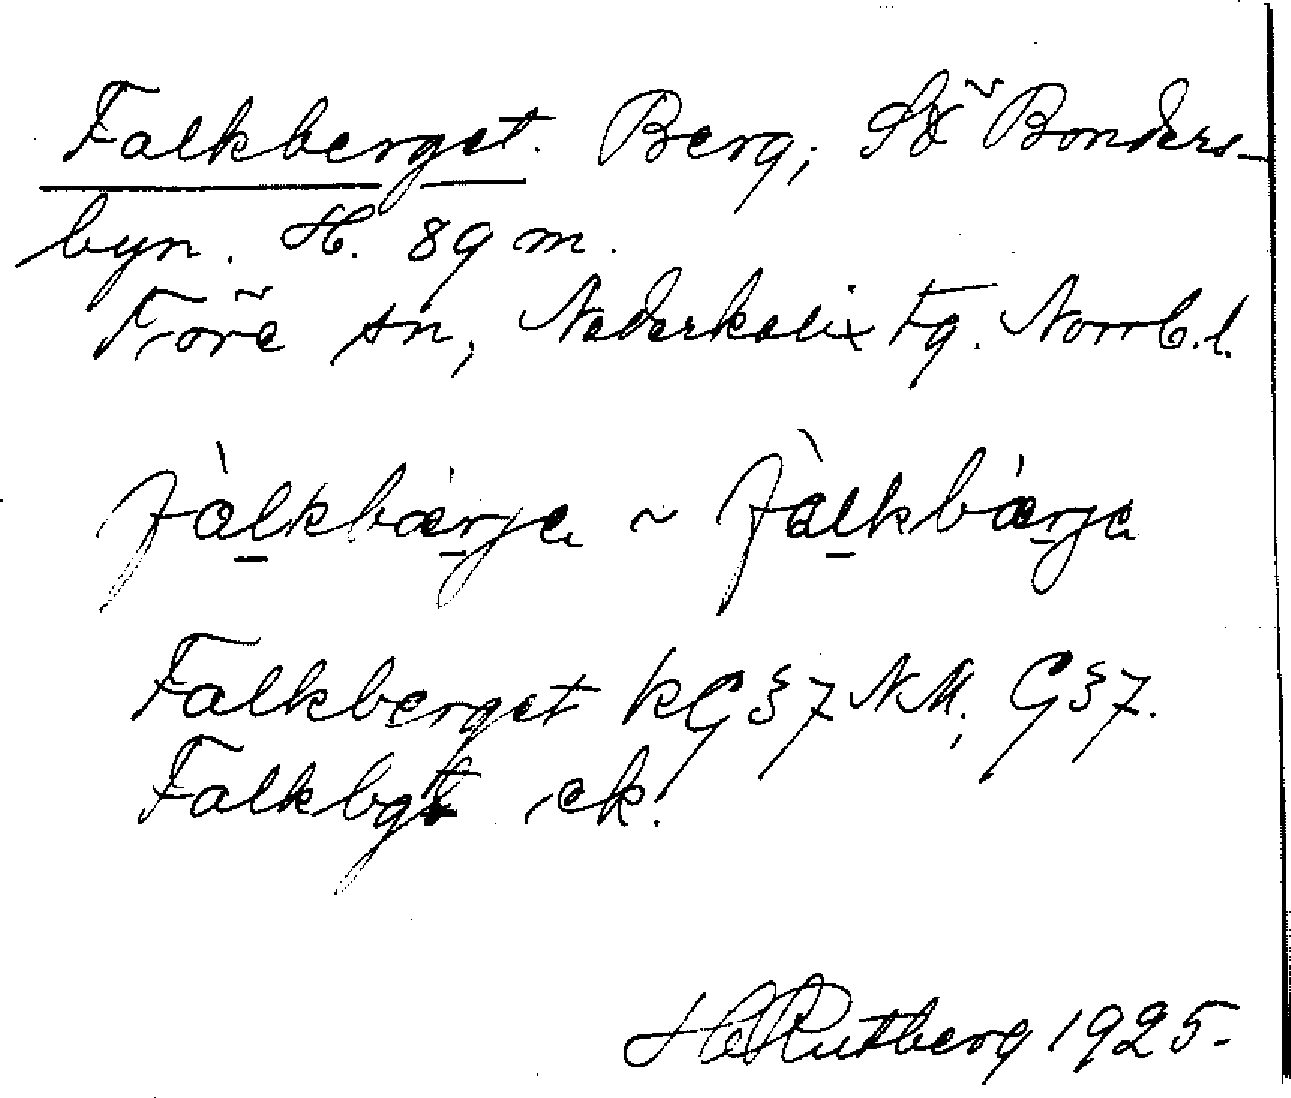 Falkberget. Berg, SO Bonders-
byn. H. 89 m.
Töre sn, Nederkalix Tg. Norrb. l.
fàlkbærja ~ fàlkbærja
Falkberget kG§7 NM, G§7.
Falkbgt ek.
H Rutberg 1925.